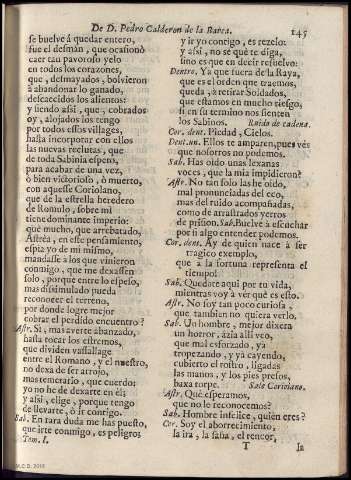 De D. Pedro Calderon de la Barca. 145
se buelve á quedar entero,
fue el desmàn, que ocasionò
caer tan pavoroso yelo
en todos los corazones,
que, desmayados, bolvieron
à abandonar lo ganado,
descaecidos los alientos:
y siendo assi, que, cobrados
oy, alojados los tengo
por todos essos villages,
hasta incorporar con ellos
las nuevas reclutas, que
de toda Sabinia espero,
para acabar de una vez,
ò bien victorioso, ò muerto,
con aquesse Coriolano,
que de la estrella heredero
de Romulo, sobre mi
tiene dominante imperio:
què mucho, que arrebatado,
Astréa, en esse pensamiento,
espia yo de mi mismo,
mandasse à los que vinieron
conmigo, que me dexassen
solo, porque entre lo espeso,
mas dissimulado pueda
reconocer el terreno,
por donde logre mejor
cobrar el perdido encuentro?
Astr. Si, mas averte abanzado,
hasta tocar los estremos,
que dividen vassallage
entre el Romano, y el nuestro,
no dexa de ser arrojo,
mas temerario, que cuerdo:
yo no he de dexarte en èl;
y assi, elige, porque tengo
de llevarte, ò ir contigo.
Sab. En rara duda me has puesto,
que irte conmigo, es peligro;
Tom. I.
y ir yo contigo, es rezelo:
y assi, no sè què te diga,
sino es que en decir resuelvo:
Dentro. Ya que fuera de la Raya,
que es el orden que traemos,
queda, à retirar Soldados,
que estamos en mucho riesgo,
si en su termino nos sienten
los Sabinos. Ruido de cadena.
Cor. dent. Piedad, Cielos.
Dent. un. Ellos te amparen, pues vès
que nosotros no podemos.
Sab. Has oido unas lexanas
voces, que la mia impidieron?
Astr. No tan solo las he oido,
mal pronunciadas del eco,
mas del ruido acompañadas,
como de arrastrados yerros
de prision. Sab. Buelve à escuchar
por si algo entender podemos.
Cor. dent. Ay de quien nace à ser
tragico exemplo,
que à la fortuna representa el
tiempo!
Sab. Quedate aqui por tu vida,
mientras voy á vèr què es esto.
Astr. No soy tan poco curiosa,
que tambien no quiera verlo.
Sab. Un hombre, mejor dixera
un horror, àzia allì veo,
que mal esforzado, yà
tropezando, y yà cayendo,
cubierto el rostro, ligadas
las manos, y los pies presos,
baxa torpe. Sale Coriolano.
Astr. Què esperamos,
que no le reconocemos?
Sab. Hombre infelice, quien eres?
Cor. Soy el aborrecimiento,
la ira, la saña, el rencor,
T la
M.C.D. 2018